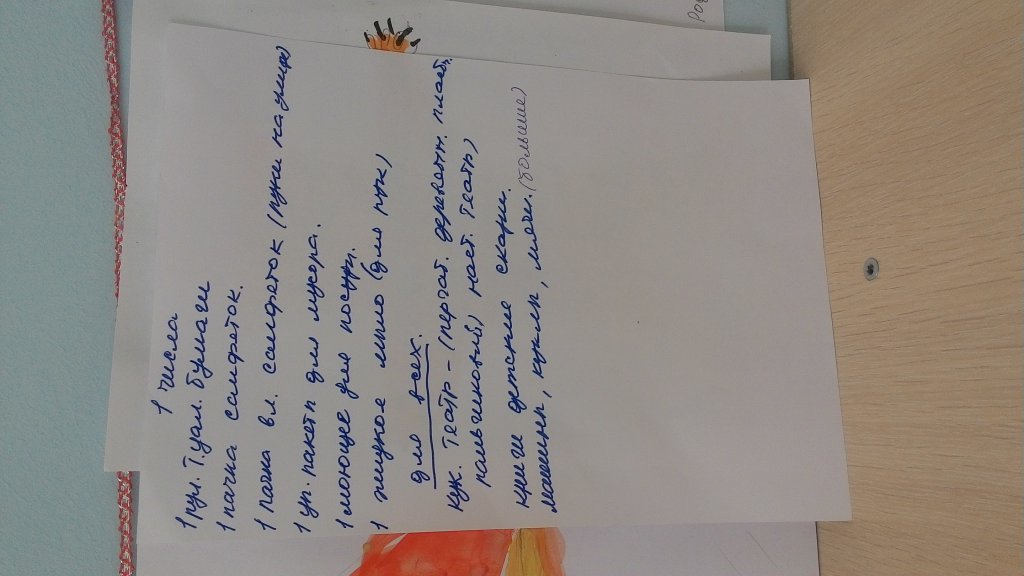 1 числа
1 рул. Туал. бумаги
1 пачка салфеток.
1 пачка вл. салфеток (нужны на улице)
1 уп. пакеты для мусора.
1 моющее для посуды.
1 жидкое мыло (для рук)
для всех.
кук. театр - (перчат. деревянн. плоск.,
пальчиковый, наст. театр)
книги детские сказки.
машины, куклы, мячи. (большие)
Род